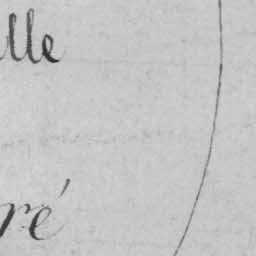 lle
ré